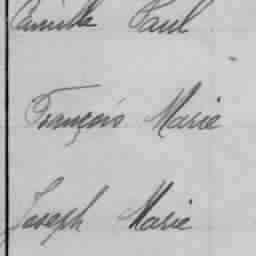 Camille Paul
François Marie
Joseph Marie